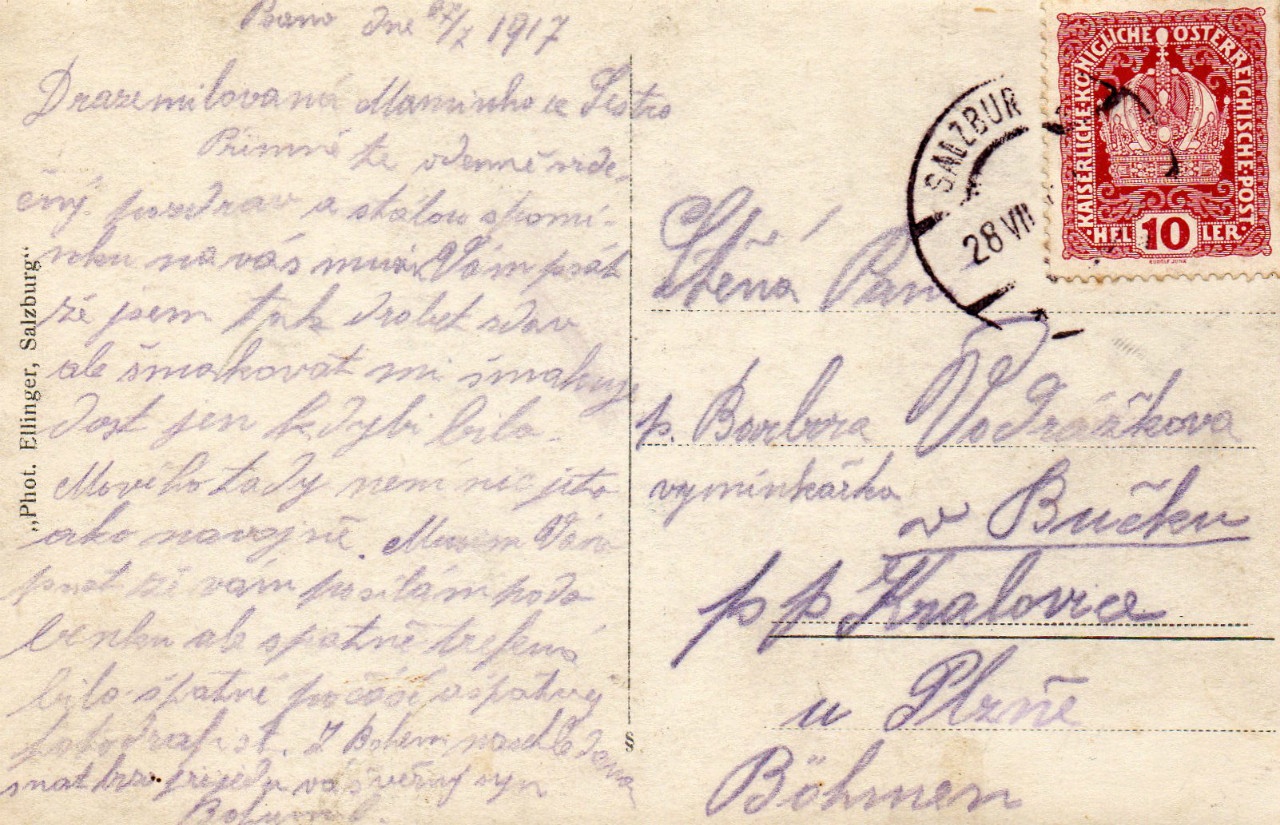 dne 27/7 1917
Drazemilovaná Maminko a Sestro
Přimně te odemně srde-
čný pozdrav a stalou spomí-
nku na vás musim Vám psát
že jsem tak drobet zdav
ale šmakovat mi šmakuje
dost jen kdybi bilo.
Moviho tady neni nic jito
ako na vojně. Musem Vám
psat že vám posilám podo
benku ale spatně trefená
bilo špatné počasí a špatney
fotodrafist. Z Bohem na schledana
snat brzo prijedu váš věrný syn
Bohumil.
„Phot. Ellinger, Salzburg“
S
SALZBUR
28 VII
KAISERLICHE·KÖNIGLICHE ÖSTERREICHISCHE·POST
HELLER
10
Ctěná Paní
p. Barbora Vodrážkova
vyminkářka
v Bučku
p p Kralovice
u Plzně
Böhmen